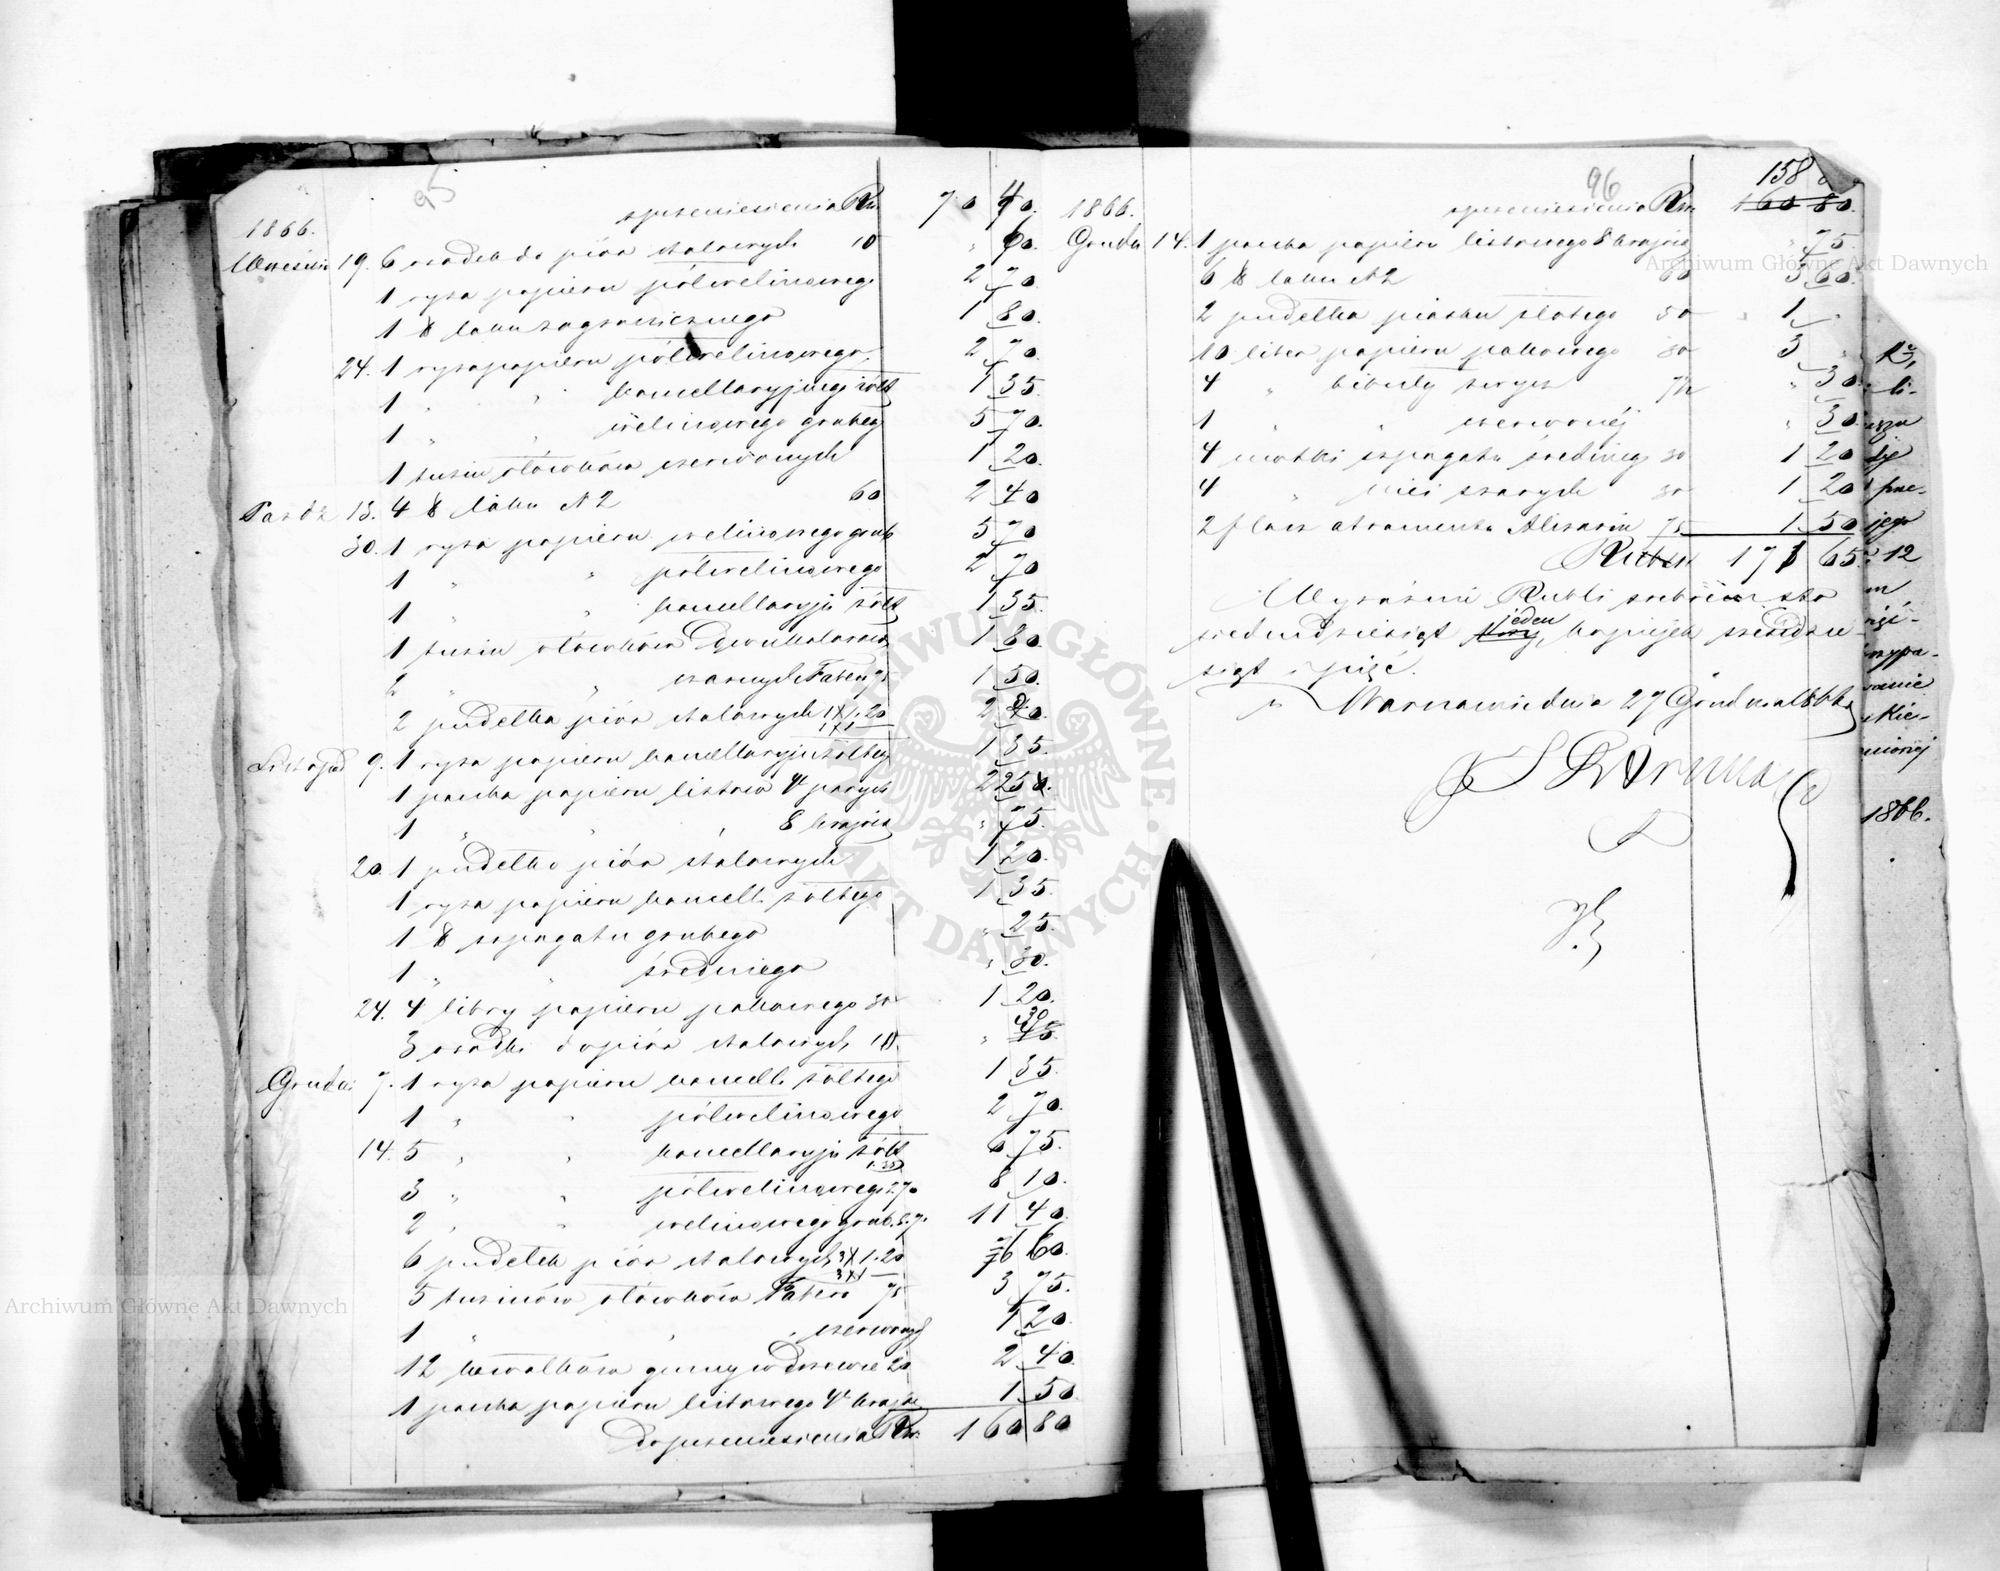 95
z przeniesienia Rs. 70 40.
1866.
Wrzesień 19. 6 osadek do piór stalowych 10 " 60.
1 ryza papieru półwelinowego 2 70.
1 ℔ laku zagranicznego 1 80.
24. 1 ryza papieru półwelinowego 2 70.
1 " " kancellaryjnego żółt 1 35.
1 " " welinowego grubego 5 70.
1 tuzin ołówków czerwonych 1 20.
Paźdz 13. 4 ℔ laku N 2 60 2 40
30. 1 ryza papieru welinowego grub 5 70
1 " " półwelinowego 2 70
1 " " kancellaryj żółt 1 35.
1 tuzin ołówków 1 80.
2 " " czarnych Faber 75 1 50.
2 pudełka piór stalowych 1 x 1.20 2 20.
1 x 1
Listopad 9. 1 ryza papieru kancellaryj żółteg 1 35.
1 paczka papieru listow 4 2 25.
1 " " " 8 krajow " 75.
20. 1 pudełko piór stalowych 1 20.
1 ryza papieru kancell. żółtego 1 35.
1 ℔ szpagatu grubego " 25.
1 " " średniego " 30.
24. 4 libry papieru pakowego 30 1 20.
3 osadki do piór stalowych 10. " 30
45.
Grudń 7. 1 ryza papieru kancell. żółtego 1 35.
1 " " półwelinowego 2 70.
14. 5 " " kancellaryj żółt 1.35 6 75.
3 " " półwelinowego 2.70 8 10.
2 " " welinowego grub. 5.70 11 40.
6 pudełek piór stalowych 3 x 1.20 6 60.
3 x 1
5 tuzinów ołówków Faber 75 3 75.
1 " " czerwonych 1 20.
12 kawałków gumy w drzewie 20 2 40.
1 paczka papieru listowego 4 1 50
Do przeniesienia Rs. 160 80
96
158
z przeniesienia Rs. 160 80.
1866.
Grudń 14. 1 paczka papieru listowego 8 krajow " 75.
6 ℔ laku N 2 60 3 60.
2 pudełka piasku złotego 50 1 "
10 liber papieru pakowego 30 3 "
4 " bibuły szarej 7½ " 30.
1 " " czerwonej " 30.
4 motki szpagatu średnieg 30 1 20
4 " nici szarych 30 1 20
2 flasz atramentu Alizarin 75 1 50
Rubsr 171 65
Wyraźnie Rubli srebrem sto
siedmdziesiąt trzy jeden, kopiejek sześćdzie
siąt i pięć.
w Warszawie dnia 27 Grudnia 1866 r.
jego
12
1866.
Archiwum Główne Akt Dawnych
Archiwum Główne Akt Dawnych
ARCHIWUM GŁÓWNE AKT DAWNYCH